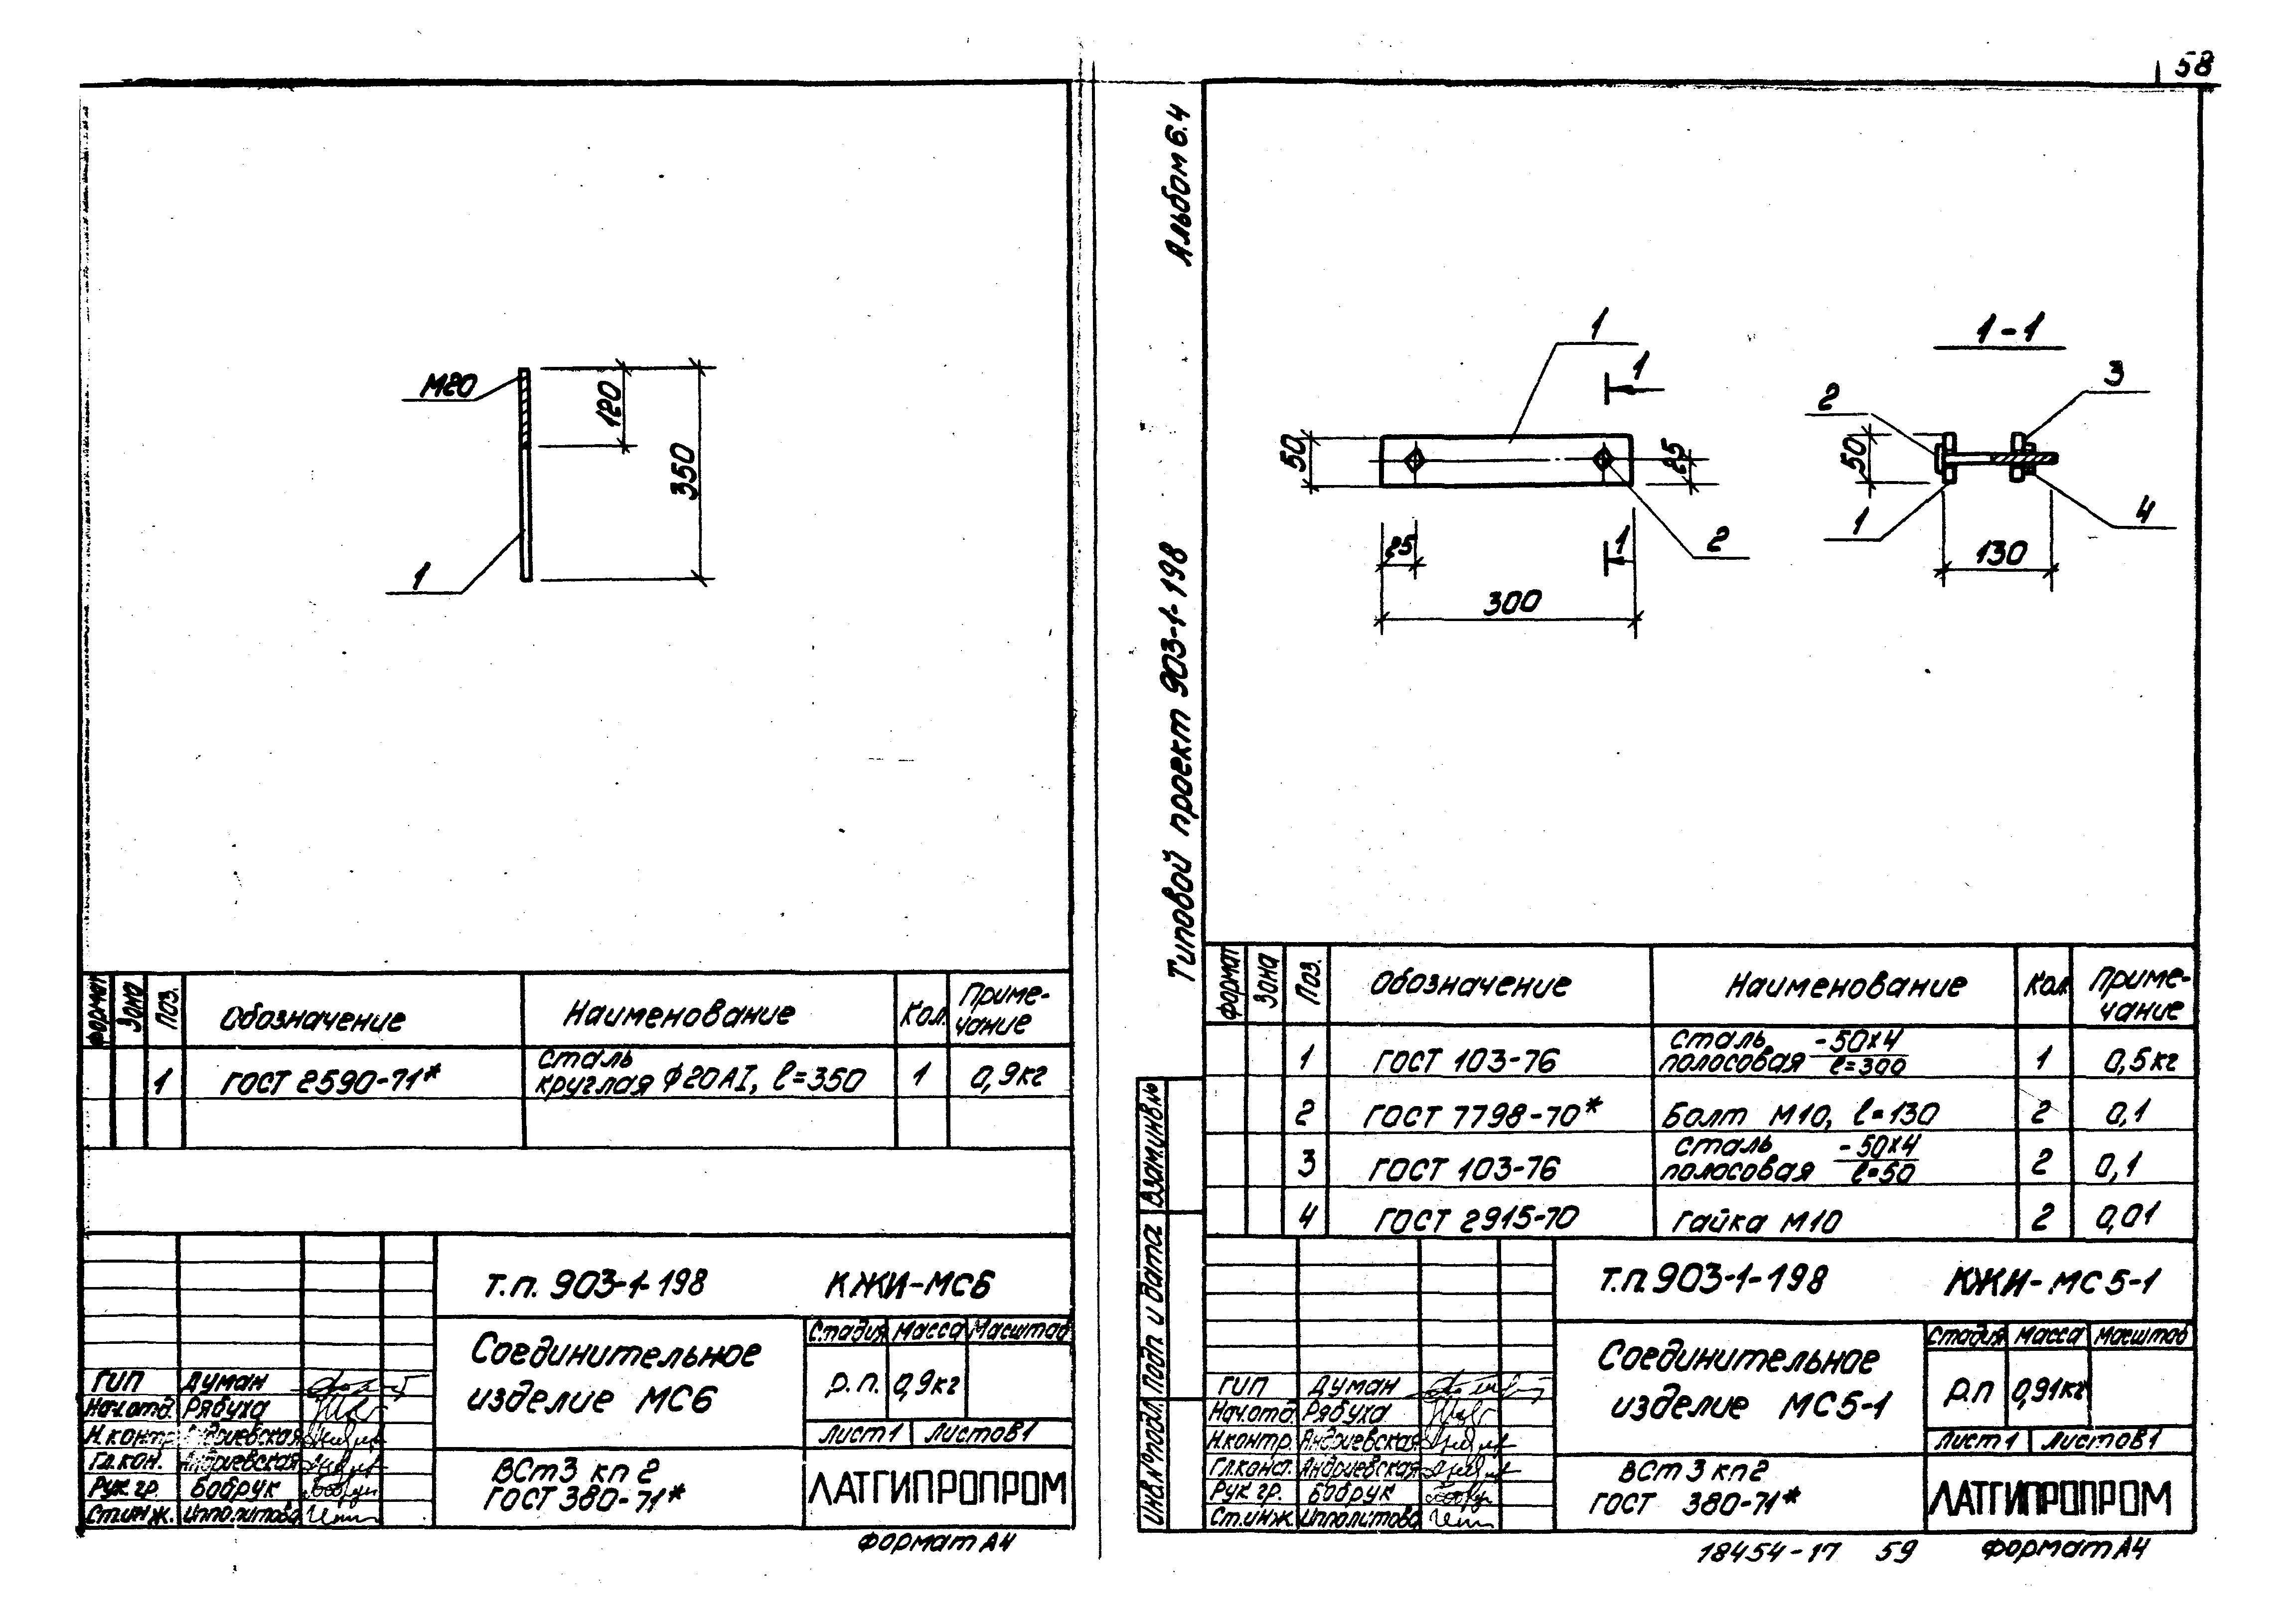 58
М20
120
350
1
Формат
Зона
Поз.
Обозначение
Наименование
Кол.
Приме-
чание
1
ГОСТ 2590-71*
Сталь
круглая Ф20АІ, ℓ=350
1
0,9кг
Т.п. 903-1-198
КЖИ-МС6
Соединительное
изделие МС6
Стадия
Масса
Масштаб
Р.п.
0,9кг
Лист 1
Листов 1
ГИП
Думан
Нач.отд.
Рябуха
Н.контр.
Андриевская
Гл.кон.
Андриевская
Рук.гр.
Бобрук
Ст.инж.
Ипполитова
ВСт3 кп2
ГОСТ 380-71*
ЛАТГИПРОПРОМ
Формат А4
Альбом 6.4
Типовой проект 903-1-198
1
1
50
25
25
1
2
300
1-1
2
3
50
1
4
130
Формат
Зона
Поз.
Обозначение
Наименование
Кол.
Приме-
чание
1
ГОСТ 103-76
Сталь
полосовая
-50х4
ℓ=300
1
0,5кг
2
ГОСТ 7798-70*
Болт М10, ℓ=130
2
0,1
3
ГОСТ 103-76
Сталь
полосовая
-50х4
ℓ=50
2
0,1
4
ГОСТ 2915-70
Гайка М10
2
0,01
Взам.инв.№
Подп. и дата
Инв.№подл.
Т.п. 903-1-198
КЖИ-МС5-1
Соединительное
изделие МС5-1
Стадия
Масса
Масштаб
Р.п
0,91кг
Лист 1
Листов 1
ГИП
Думан
Нач.отд.
Рябуха
Н.контр.
Андриевская
Гл.конс.
Андриевская
Рук.гр.
Бобрук
Ст.инж.
Ипполитова
ВСт3 кп2
ГОСТ 380-71*
ЛАТГИПРОПРОМ
18454-17 59
Формат А4